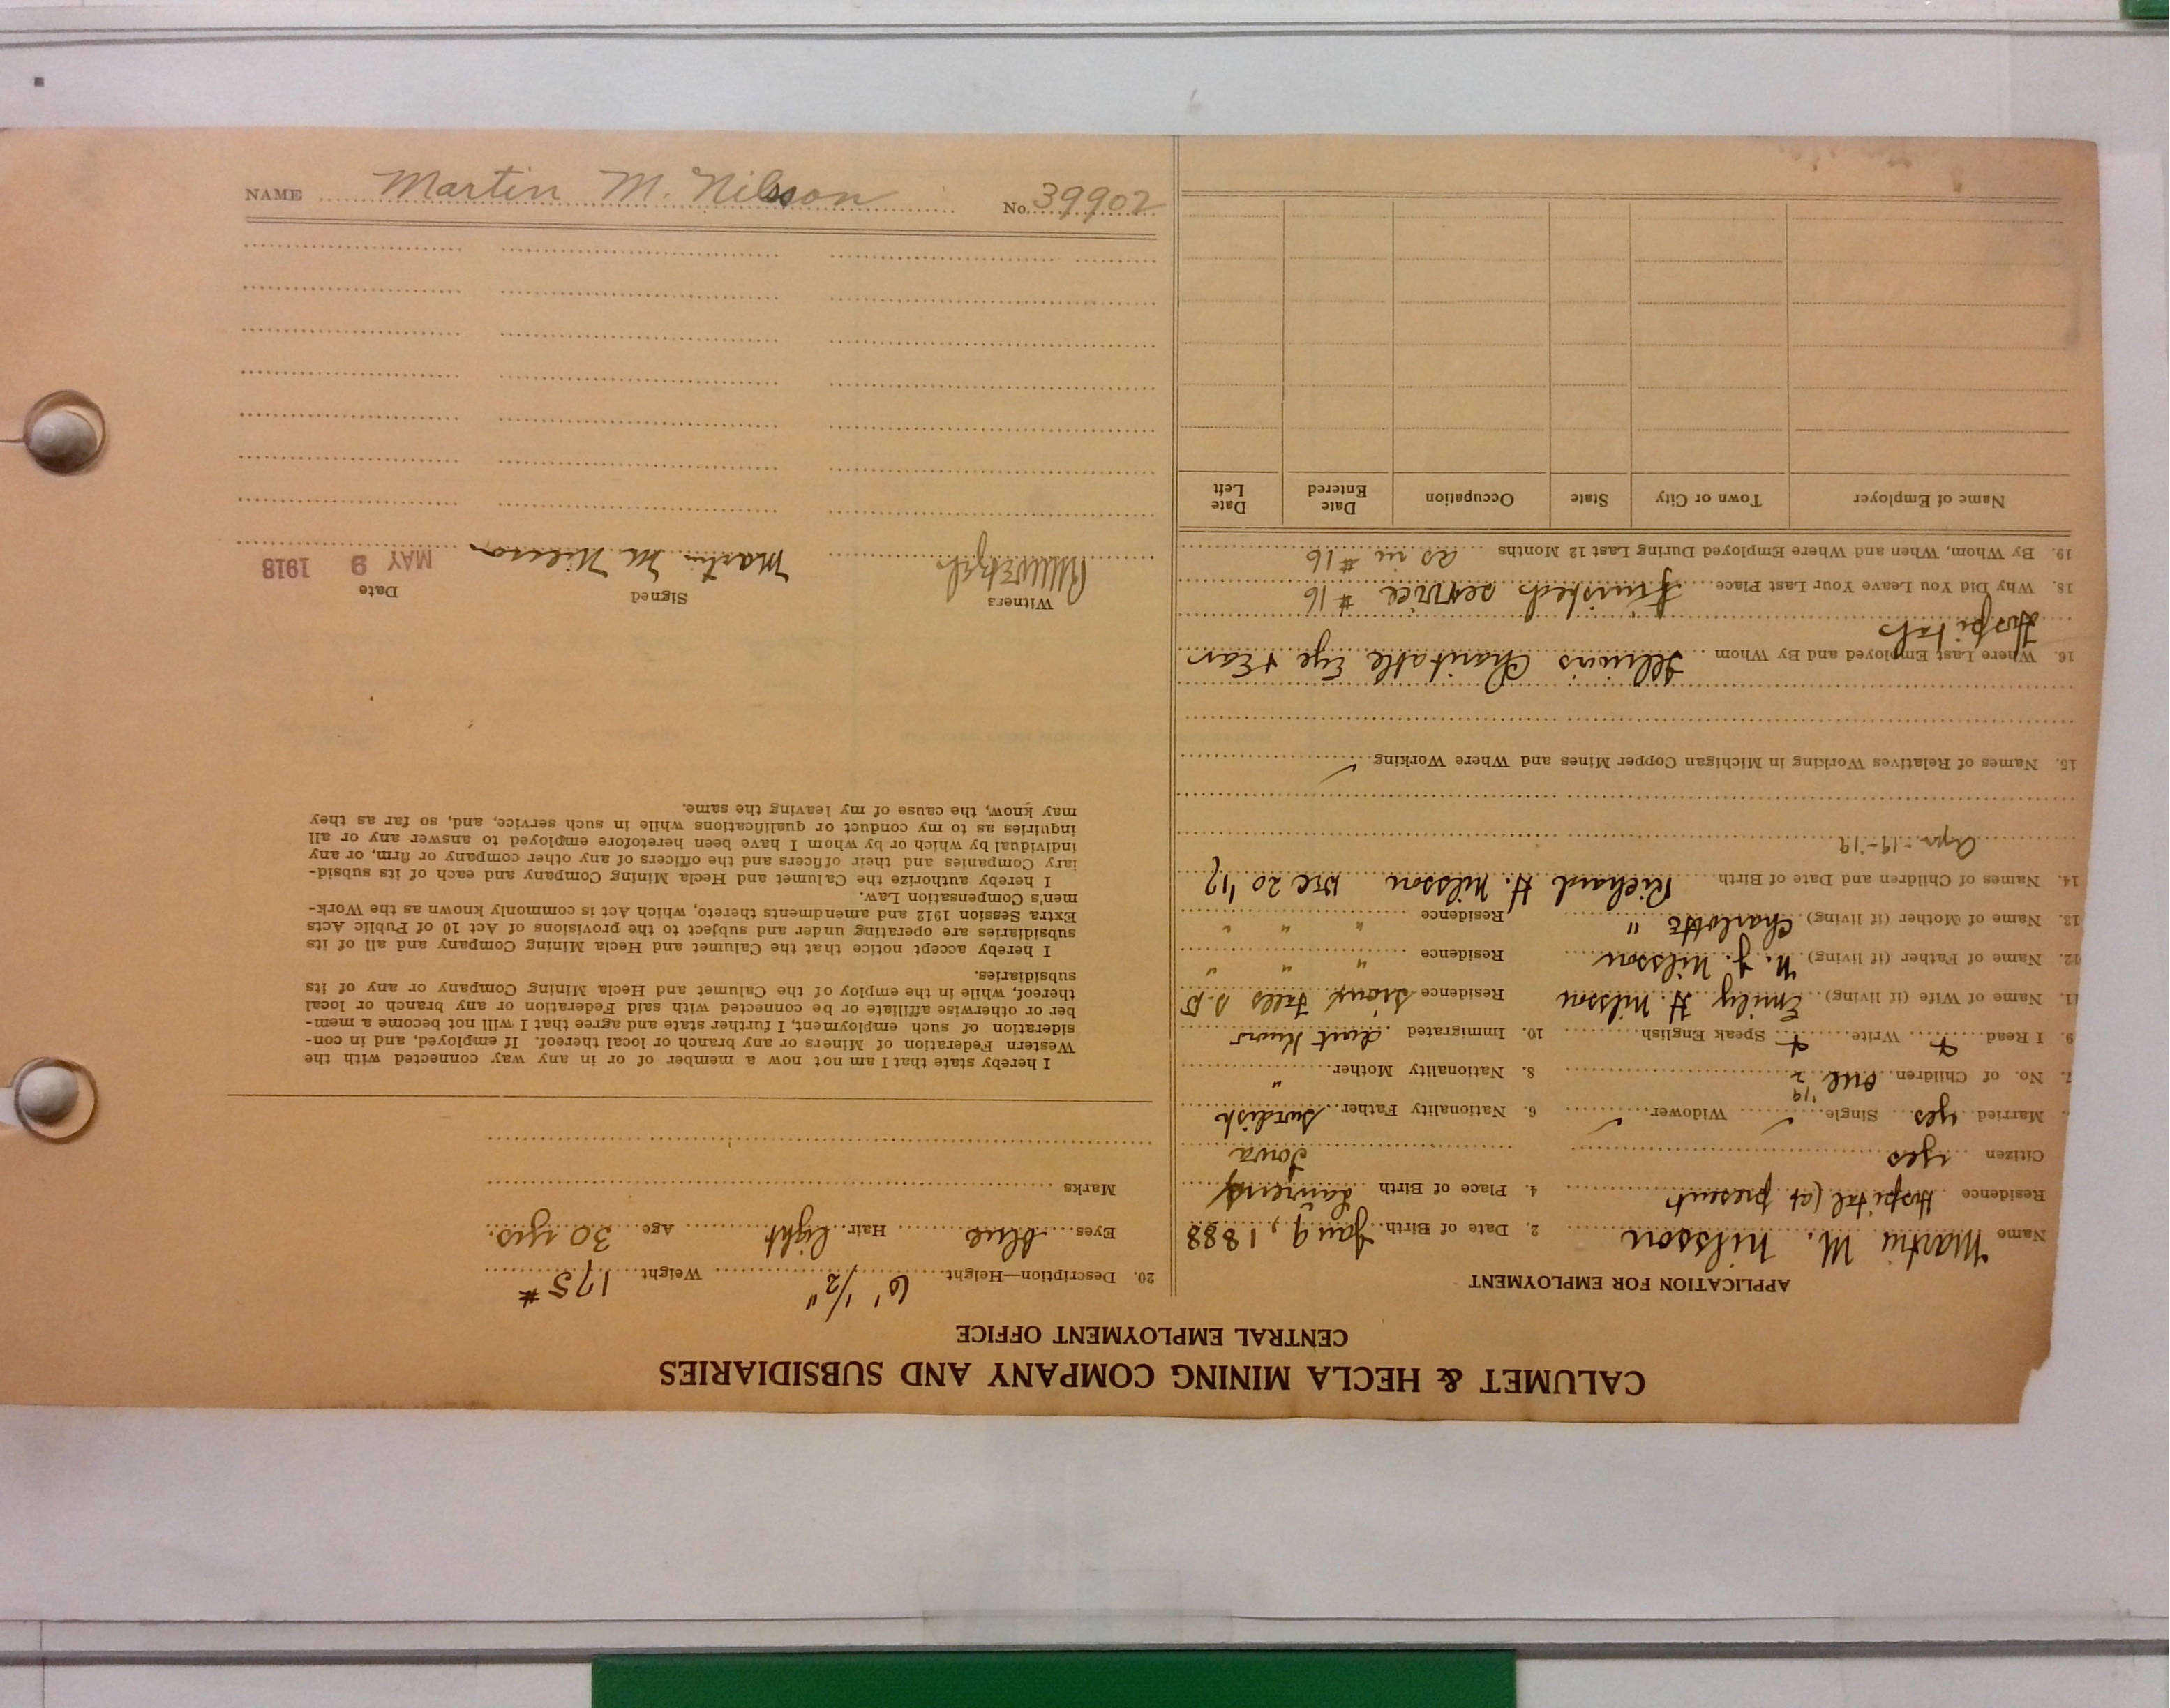 CALUMET & HECLA MINING COMPANY AND SUBSIDIARIES
CENTRAL EMPLOYMENT OFFICE
APPLICATION FOR EMPLOYMENT
Name Martin M. Nilsson 2. Date of Birth Jan 9, 1888
Residence Hospital (at present 4. Place of Birth Laurens
Citizen yes Iowa
Married yes Single ✓ Widower ✓ 6. Nationality Father Swedish
7. No. of Children one 2 '19 8. Nationality Mother "
9. I Read Write Speak English 10. Immigrated dont know
11. Name of Wife (if living) Emily H. Nilsson Residence Sioux Falls S.D
12. Name of Father (if living) N. J. Nilsson Residence " " "
13. Name of Mother (if living) Charlotte " Residence " " "
14. Names of Children and Date of Birth Richard H. Nilsson Dec 20 '17
Apr-19-'19
15. Names of Relatives Working in Michigan Copper Mines and Where Working ✓
16. Where Last Employed and By Whom Illinois Charitable Eye & Ear
Hospital
18. Why Did You Leave Your Last Place finished service #16
19. By Whom, When and Where Employed During Last 12 Months as in #16
Name of Employer Town or City State Occupation Date Entered Date Left
20. Description—Height 6' 1/2" Weight 175 #
Eyes blue Hair light Age 30 yrs.
Marks
I hereby state that I am not now a member of or in any way connected with the
Western Federation of Miners or any branch or local thereof. If employed, and in con-
sideration of such employment, I further state and agree that I will not become a mem-
ber or otherwise affiliate or be connected with said Federation or any branch or local
thereof, while in the employ of the Calumet and Hecla Mining Company or any of its
subsidiaries.
I hereby accept notice that the Calumet and Hecla Mining Company and all of its
subsidiaries are operating under and subject to the provisions of Act 10 of Public Acts
Extra Session 1912 and amendments thereto, which Act is commonly known as the Work-
men's Compensation Law.
I hereby authorize the Calumet and Hecla Mining Company and each of its subsid-
iary Companies and their officers and the officers of any other company or firm, or any
individual by which or by whom I have been heretofore employed to answer any or all
inquiries as to my conduct or qualifications while in such service, and, so far as they
may know, the cause of my leaving the same.
Witness Signed Date
Martin M Nilsson MAY 9 1918
NAME Martin M. Nilsson No. 39902